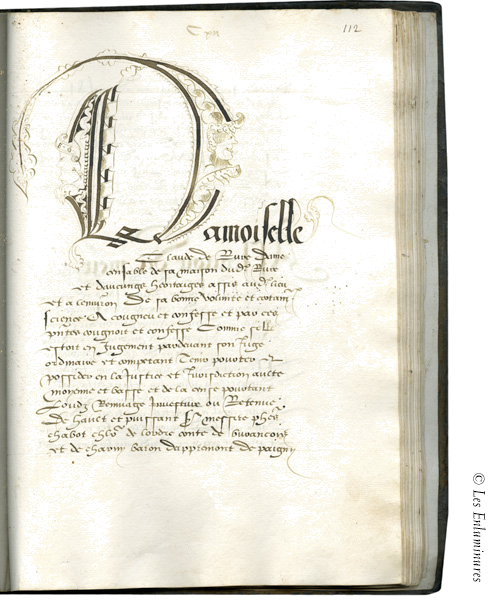 Cxii
112
Damoiselle
Claude de Rure Dame
consable de sa maison dud Rure
et daucunge heontaiges assis aud lieu
et a lenviron De sa bonne volunte et certain
science A cougneu et confesse et par ces
pntes cougnoit et confesse Comme selle
estoit en Jugement pardevant son Juge
ordinaire et competant Tenir porter et
posseder en la Justice et Jurisdiction aulte
moienne et basse et de la cense portant
Loudz Remuage Investiture ou Retenue
De hault et puissant Sr messire phes
chabot chlr de lordre conte de buzancois
et de charny baron dapremont de paigny
© Les Enluminures